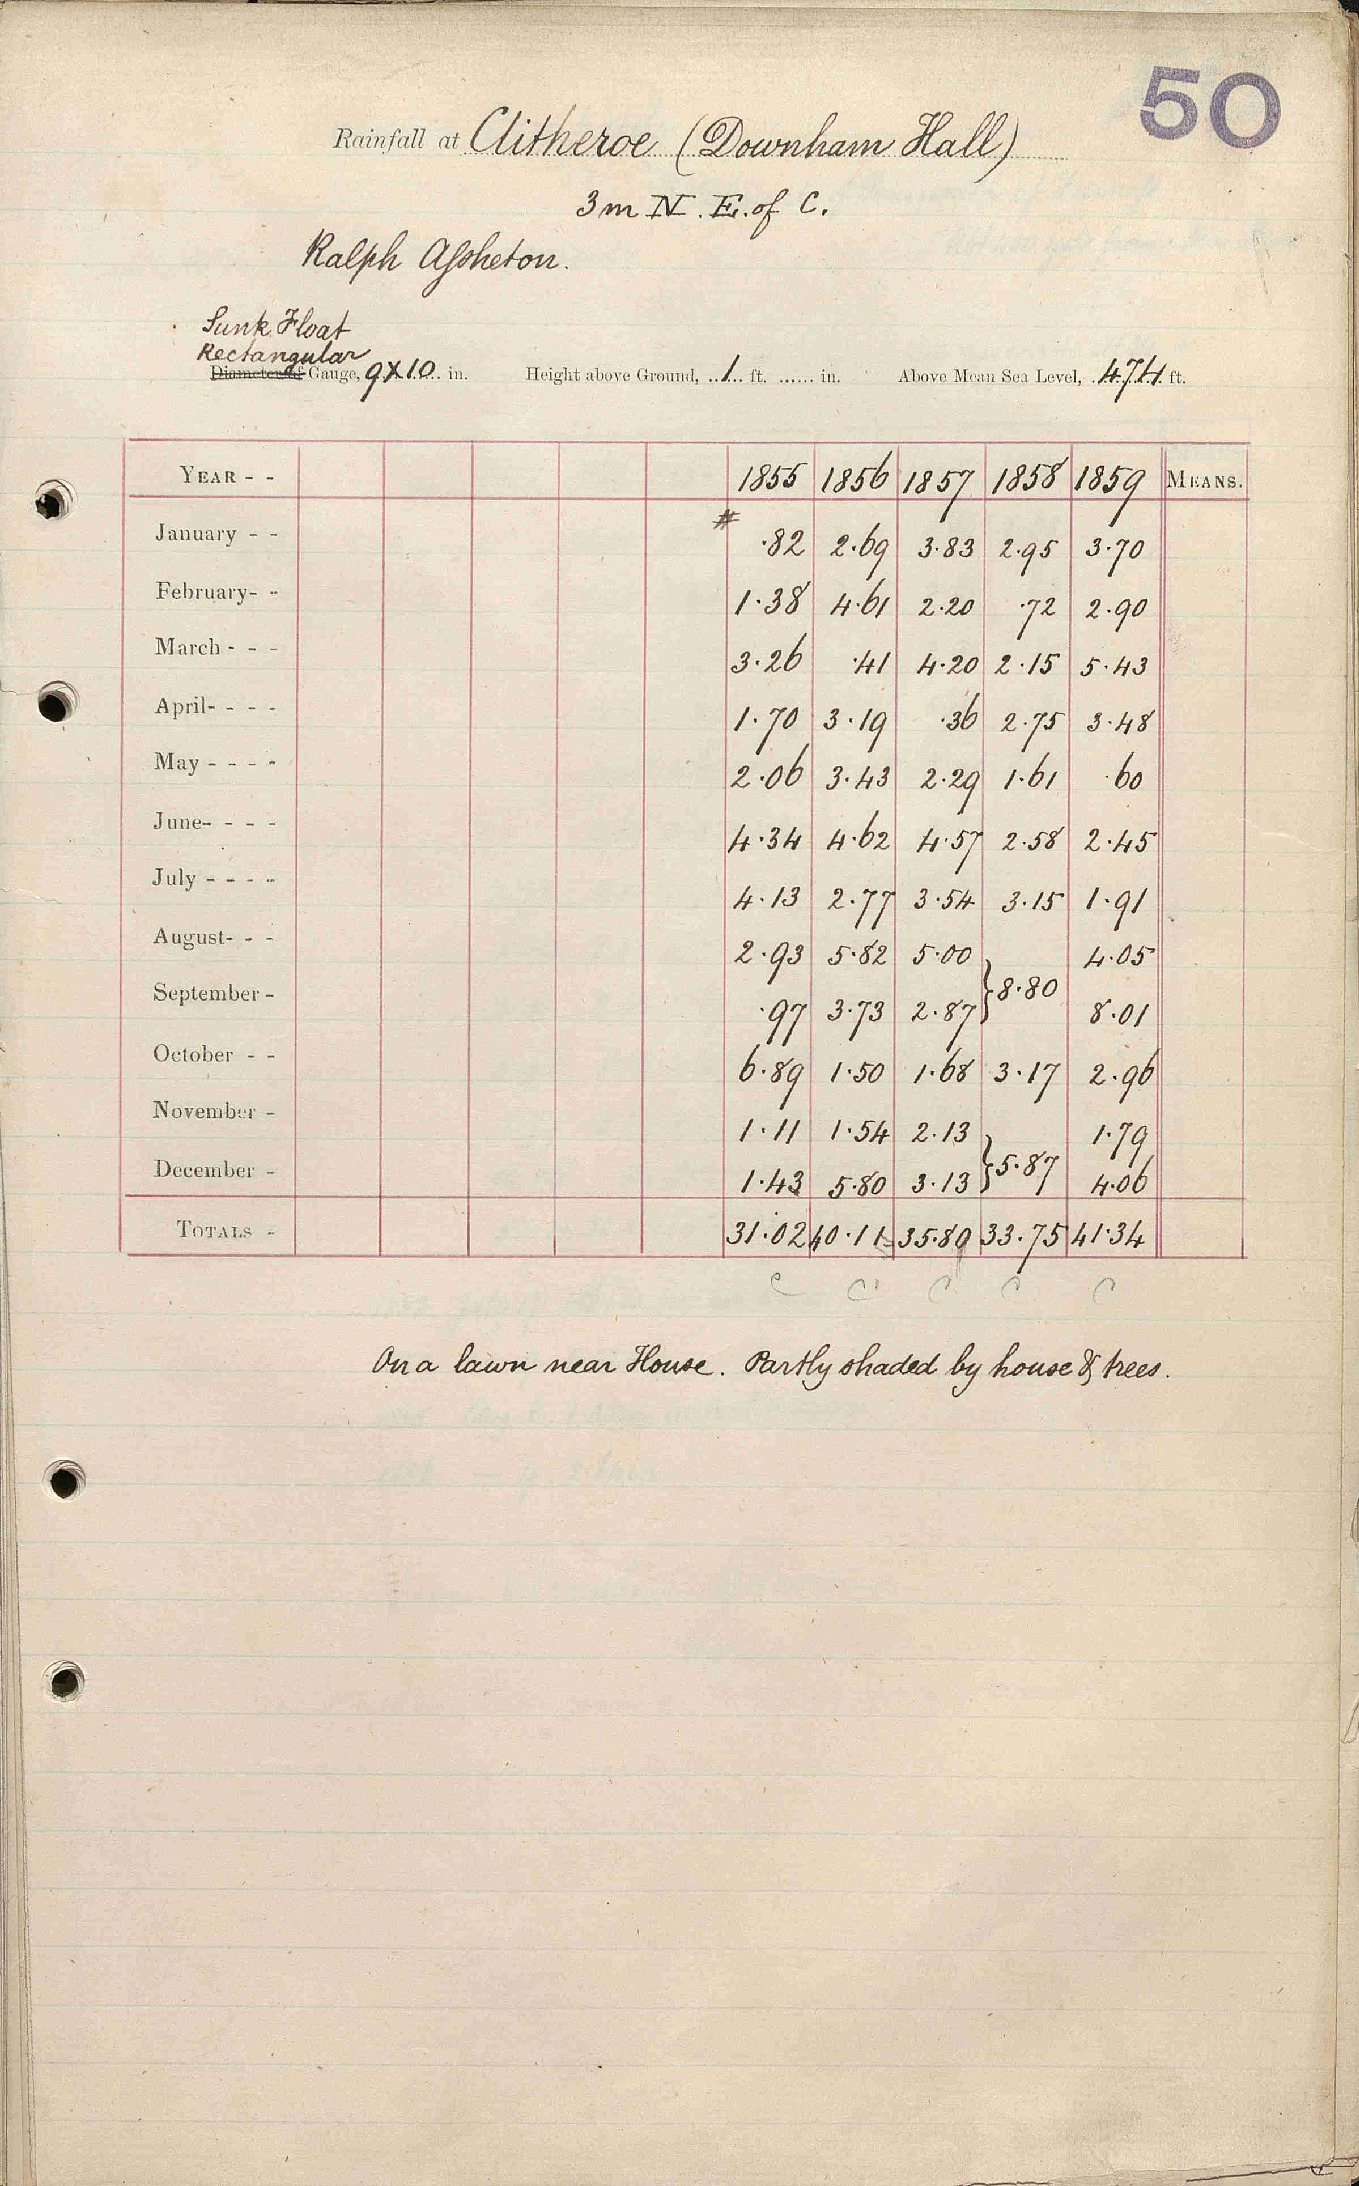 50
Rainfall at Clitheroe (Downham Hall)
3m N. E. of C.
Ralph Assheton.
Sunk Float
Rectangular
Diameter of Gauge, 9X10 in. Height above Ground, 1 ft. in. Above Mean Sea Level, 474 ft.
YEAR - - 1855 1856 1857 1858 1859 MEANS.
#
January - - ·82 2·69 3·83 2·95 3·70
February- - 1·38 4·61 2·20 ·72 2·90
March - - - 3·26 ·41 4·20 2·15 5·43
April- - - - 1·70 3·19 ·36 2·75 3·48
May - - - - 2·06 3·43 2·29 1·61 ·60
June- - - - 4·34 4·62 4·57 2·58 2·45
July - - - - 4·13 2·77 3·54 3·15 1·91
August- - - 2·93 5·82 5·00 4·05
}8·80
September - ·97 3·73 2·87 8·01
October - - 6·89 1·50 1·68 3·17 2·96
November - 1·11 1·54 2·13 1·79
}5·87
December - 1·43 5·80 3·13 4·06
TOTALS - 31·02 40·11 35·80 33·75 41·34
c c c c c
On a lawn near House. Partly shaded by house & trees.